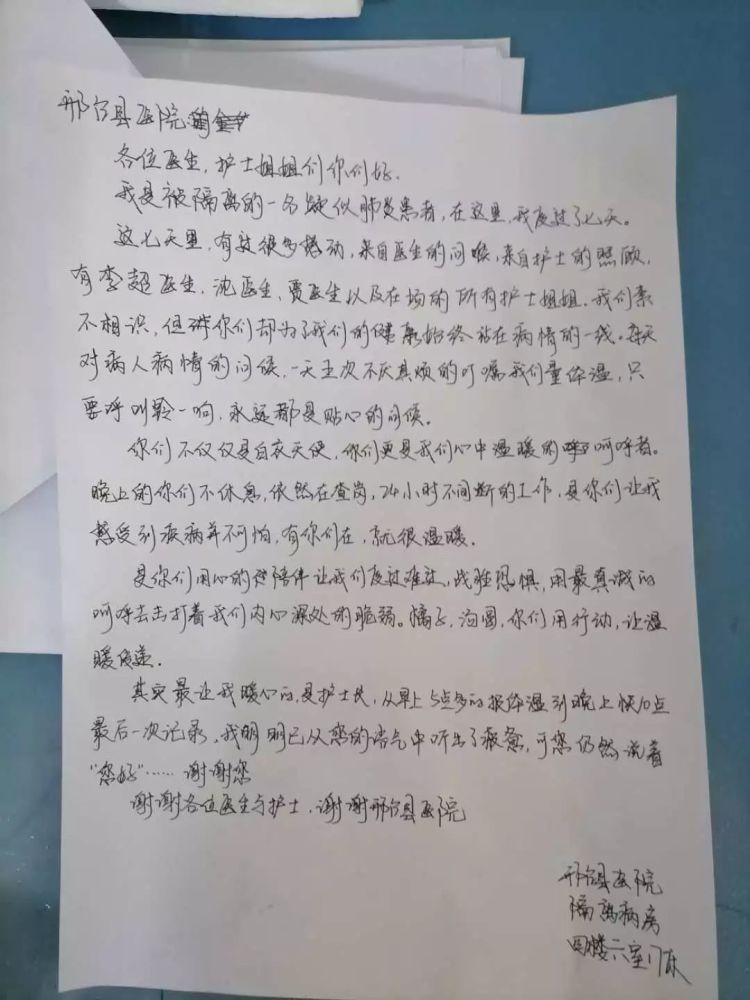 邢台县医院
各位医生,护士姐姐们你们好.
我是被隔离的一名疑似肺炎患者,在这里,我度过了七天。
这七天里,有过很多感动,来自医生的问候,来自护士的照顾,
有李超医生.沈医生,贾医生以及在场的所有护士姐姐.我们素
不相识,但你们却为了我们的健康始终站在病情的一线。每天
对病人病情的问候,一天五次不厌其烦的叮嘱我们量体温,只
要呼叫铃一响,永远都是贴心的问候。
你们不仅仅是白衣天使,你们更是我们心中温暖的呵呼者。
晚上的你们不休息,依然在查岗,24小时不间断的工作,是你们让我
感受到疾病并不可怕,有你们在,就很温暖.
是你们用心的陪伴让我们度过难过,战胜恐惧,用最真诚的
呵呼去击打着我们内心深处的脆弱。橘子,汤圆,你们用行动,让温
暖传递.
其实最让我暖心的,是护士长,从早上5点多的报体温到晚上快10点
最后一次记录,我明明已从您的语气中听出了疲惫,可您仍然说着
"您好"……谢谢您
谢谢各位医生与护士.谢谢邢台县医院
邢台县医院
隔离病房
四楼六室17床